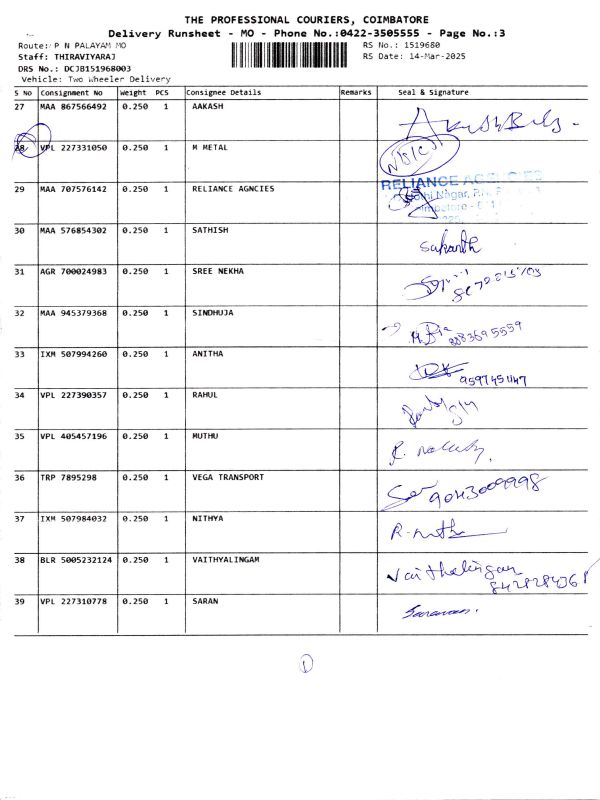 THE PROFESSIONAL COURIERS, COIMBATORE
Delivery Runsheet - MO - Phone No.:0422-3505555 - Page No.:3
Route: P N PALAYAM MO RS No.: 1519680
Staff: THIRAVIYARAJ RS Date: 14-Mar-2025
DRS No.: DCJB151968003
Vehicle: Two Wheeler Delivery
S No Consignment No Weight PCS Consignee Details Remarks Seal & Signature
27 MAA 867566492 0.250 1 AAKASH
28 VPL 227331050 0.250 1 M METAL
29 MAA 707576142 0.250 1 RELIANCE AGNCIES RELIANCE AGENCIES
30 MAA 576854302 0.250 1 SATHISH
31 AGR 700024983 0.250 1 SREE NEKHA
32 MAA 945379368 0.250 1 SINDHUJA
33 IXM 507994260 0.250 1 ANITHA
34 VPL 227390357 0.250 1 RAHUL
35 VPL 405457196 0.250 1 MUTHU
36 TRP 7895298 0.250 1 VEGA TRANSPORT 9043009998
37 IXM 507984032 0.250 1 NITHYA
38 BLR 5005232124 0.250 1 VAITHYALINGAM Vaithalingam
39 VPL 227310778 0.250 1 SARAN
1